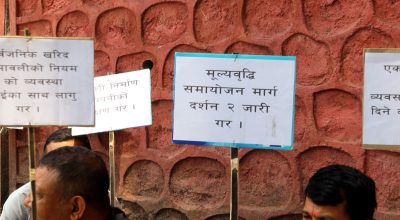 र्वजनिक खरिद
मावलीको नियम
को व्यवस्था
ईका साथ लागु
गर ।
ी निर्माण
यवीको
गर ।
मूल्यवृद्धि
समायोजन मार्ग
दर्शन २ जारी
गर ।
एक
व्यवस
दिने व